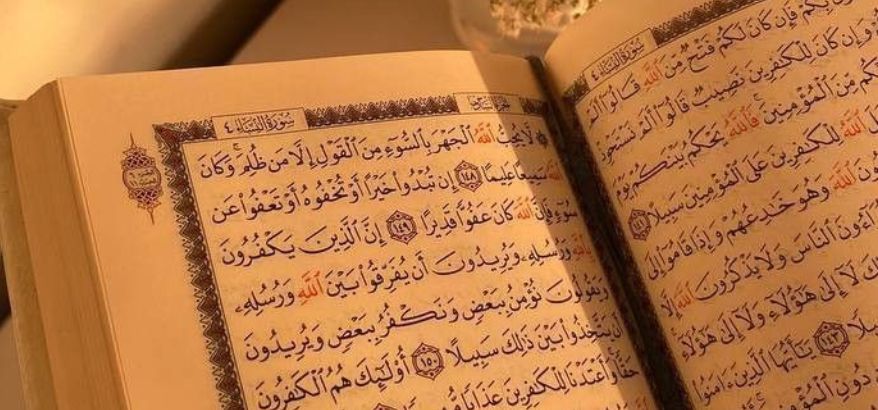 سُورَةُ النِّسَاءِ ٤
فَإِن كَانَ لَكُمْ فَتْحٌ مِّنَ ٱللَّهِ قَالُوٓاْ أَلَمْ
وَإِن كَانَ لِلْكَٰفِرِينَ نَصِيبٌ قَالُوٓاْ أَلَمْ نَسْتَحْوِذْ
مِّنَ ٱلْمُؤْمِنِينَ فَٱللَّهُ يَحْكُمُ بَيْنَكُمْ يَوْمَ
ٱللَّهُ لِلْكَٰفِرِينَ عَلَى ٱلْمُؤْمِنِينَ سَبِيلًا ١٤١
ٱللَّهَ وَهُوَ خَٰدِعُهُمْ وَإِذَا قَامُوٓاْ إِلَى
ٱلنَّاسَ وَلَا يَذْكُرُونَ ٱللَّهَ إِلَّا
لَآ إِلَىٰ هَٰٓؤُلَآءِ وَلَآ إِلَىٰ هَٰٓؤُلَآءِ
١٤٣ يَٰٓأَيُّهَا ٱلَّذِينَ ءَامَنُواْ
دُونِ ٱلْمُؤْمِنِينَ
سُورَةُ النِّسَاءِ ٤
لَّا يُحِبُّ ٱللَّهُ ٱلْجَهْرَ بِٱلسُّوٓءِ مِنَ ٱلْقَوْلِ إِلَّا مَن ظُلِمَ وَكَانَ
ٱللَّهُ سَمِيعًا عَلِيمًا ١٤٨ إِن تُبْدُواْ خَيْرًا أَوْ تُخْفُوهُ أَوْ تَعْفُواْ عَن
سُوٓءٍ فَإِنَّ ٱللَّهَ كَانَ عَفُوًّا قَدِيرًا ١٤٩ إِنَّ ٱلَّذِينَ يَكْفُرُونَ
بِٱللَّهِ وَرُسُلِهِۦ وَيُرِيدُونَ أَن يُفَرِّقُواْ بَيْنَ ٱللَّهِ وَرُسُلِهِۦ
وَيَقُولُونَ نُؤْمِنُ بِبَعْضٍ وَنَكْفُرُ بِبَعْضٍ وَيُرِيدُونَ
أَن يَتَّخِذُواْ بَيْنَ ذَٰلِكَ سَبِيلًا ١٥٠ أُوْلَٰٓئِكَ هُمُ ٱلْكَٰفِرُونَ
حَقًّا وَأَعْتَدْنَا لِلْكَٰفِرِينَ عَذَابًا